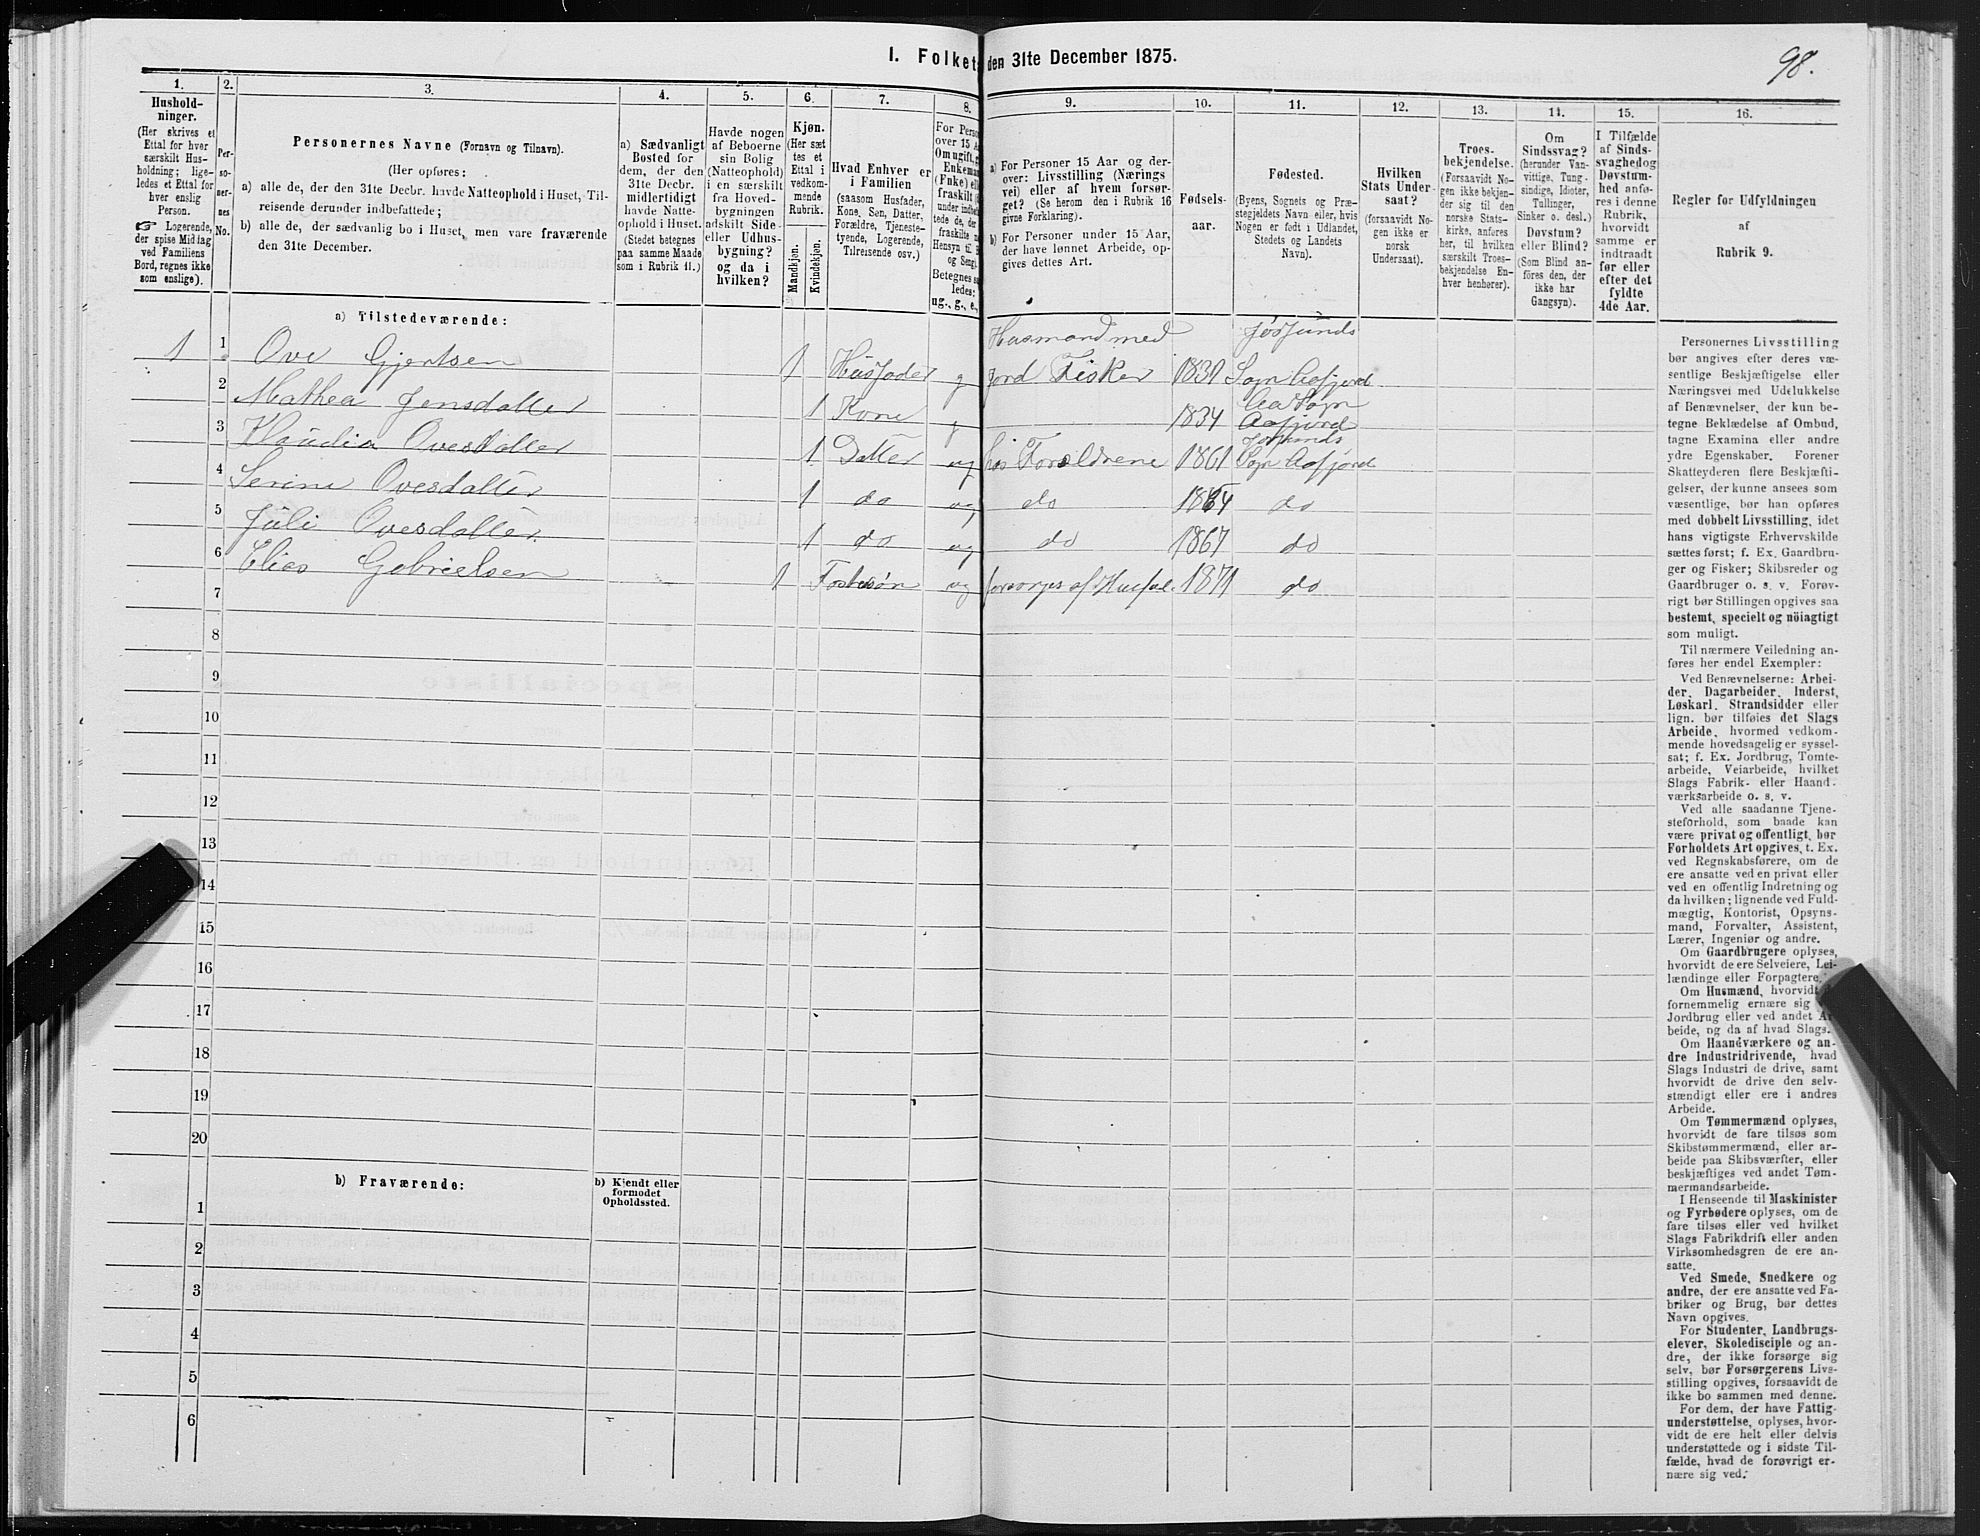 I. Folket den 31te December 1875.
98.
1.
Hushold-
ninger.
(Her skrives et
Ettal for hver
særskilt Hus-
holdning; lige-
ledes et Ettal for
hver enslig
Person.
Logerende,
der spise Middag
ved Familiens
Bord, regnes ikke
som enslige).
2.
Per-
so-
ner-
nes
No.
3.
Personernes Navne (Fornavn og Tilnavn).
(Her opføres:
a) alle de, der den 31te Decbr. havde Natteophold i Huset, Til-
reisende derunder indbefattede;
b) alle de, der sædvanlig bo i Huset, men vare fraværende
den 31te December.
4.
a) Sædvanligt
Bosted for
dem, der den
31te Decbr.
midlertidigt
havde Natte-
ophold i Huset.
(Stedet betegnes
paa samme Maade
som i Rubrik 11.)
5.
Havde nogen
af Beboerne
sin Bolig
(Natteophold)
i en særskilt
fra Hoved-
bygningen
adskilt Side-
eller Udhus-
bygning?
og da i
hvilken?
6.
Kjøn.
(Her sæt
tes et
Ettal i
vedkom-
mende
Rubrik.
Mandkjøn.
Kvindekjøn.
7.
Hvad Enhver er
i Familien
(saasom Husfader,
Kone, Søn, Datter,
Forældre, Tjeneste-
tyende, Logerende,
Tilreisende osv.)
8.
For Pers
over 15 A
Om ugift, g
Enkeman
(Enke) el
fraskilt (
under indbe
tede de, de
fraskilte
Hensyn til B
og Seng).
Betegnes s
ledes:
ug., g., e.,
9.
a) For Personer 15 Aar og der-
over: Livsstilling (Nærings
vei) eller af hvem forsør-
get? (Se herom den i Rubrik 16
givne Forklaring).
b) For Personer under 15 Aar,
der have lønnet Arbeide, op-
gives dettes Art.
10.
Fødsels-
aar.
11.
Fødested.
(Byens, Sognets og Præ-
stegjeldets Navn eller, hvis
Nogen er født i Udlandet,
Stedets og Landets
Navn).
12.
Hvilken
Stats Under-
saat?
(forsaavidt No-
gen ikke er
norsk
Undersaat).
13.
Troes-
bekjendelse.
(Forsaavidt No-
gen ikke bekjen-
der sig til den
norske Stats-
kirke, anføres
her, til hvilken
særskilt Troes-
bekjendelse En-
hver henhører).
14.
Om
Sindssvag?
(herunder Van-
vittige, Tung-
sindige, Idioter,
Tullinger,
Sinker o. desl.)
Døvstum?
eller Blind?
(Som Blind an-
føres den, der
ikke har
Gangsyn).
15.
I Tilfælde
af Sinds-
svaghed og
Døvstum-
hed anfø-
res i denne
Rubrik,
hvorvidt
samme er
indtraadt
før eller
efter det
fyldte
4de Aar.
16.
Regler for Udfyldningen
af
Rubrik 9.
a) Tilstedeværende:
Husmand med Jøssunds
1 1 Ove Gjertsen 1 Husfader g jord Fisker 1831 Sogn Aafjord
2 Mathea Jensdatter 1 Kone g 1834 Aa Sogn Aafjord
3 Klaudia Ovesdatter 1 Datter ug hos Forældrene 1861 Jøssunds Sogn Aafjord
4 Serine Ovesdatter 1 do ug do 1864 do
5 Juli Ovesdatter 1 do ug do 1867 do
6 Elias Gabrielsen 1 Fostersøn ug forsørges af Husfad. 1871 do
7
8
9
10
11
12
13
14
15
16
17
18
19
20
b) Fraværende:
b) Kjendt eller
formodet
Opholdssted.
1
2
3
4
5
6
Personernes Livsstilling
bør angives efter deres væ-
sentlige Beskjæftigelse eller
Næringsvei med Udelukkelse
af Benævnelser, der kun be-
tegne Beklædelse af Ombud,
tagne Examina eller andre
ydre Egenskaber. Forener
Skatteyderen flere Beskjæfti-
gelser, der kunne ansees som
væsentlige, bør han opføres
med dobbelt Livsstilling, idet
hans vigtigste Erhvervskilde
sættes først; f. Ex. Gaardbru-
ger og Fisker; Skibsreder og
Gaardbruger o. s. v. Forøv-
rigt bør Stillingen opgives saa
bestemt, specielt og nöiagtigt
som muligt.
Til nærmere Veiledning an-
føres her endel Exempler:
Ved Benævnelserne: Arbei-
der, Dagarbeider, Inderst,
Løskarl, Strandsidder eller
lign. bør tilføies det Slags
Arbeide, hvormed vedkom-
mende hovedsagelig er syssel-
sat; f. Ex. Jordbrug, Tomte-
arbeide, Veiarbeide, hvilket
Slags Fabrik- eller Haand-
værksarbeide o. s. v.
Ved alle saadanne Tjene-
steforhold, som baade kan
være privat og offentligt, bør
Forholdets Art opgives, t. Ex.
ved Regnskabsførere, om de
ere ansatte ved en privat eller
ved en offentlig Indretning og
da hvilken; lignende ved Fuld-
mægtig, Kontorist, Opsyns-
mand, Forvalter, Assistent,
Lærer, Ingeniør og andre.
Om Gaardbrugere oplyses,
hvorvidt de ere Selveiere, Lei-
lændinge eller Forpagtere.
Om Husmænd, hvorvidt
fornemmelig ernære sig
Jordbrug eller ved andet Ar
beide, og da af hvad Slags.
Om Haandværkere og an-
dre Industridrivende, hvad
Slags Industri de drive, samt
hvorvidt de drive den selv-
stændigt eller ere i andres
Arbeide.
Om Tømmermænd oplyses,
hvorvidt de fare tilsøs som
Skibstømmermænd, eller ar-
beide paa Skibsværfter, eller
beskjæftiges ved andet Tøm-
mermandsarbeide.
I Henseende til Maskinister
og Fyrbødere oplyses, om de
fare tilsøs eller ved hvilket
Slags Fabrikdrift eller anden
Virksomhedsgren de ere an-
satte.
Ved Smede, Snedkere og
andre, der ere ansatte ved Fa-
briker og Brug, bør dettes
Navn opgives.
For Studenter, Landbrugs-
elever, Skoledisciple og an-
dre, der ikke forsørge sig
selv, bør Forsørgerens Livs-
stilling opgives, forsaavidt de
ikke bo sammen med denne.
For dem, der have Fattig-
understøttelse, oplyses, hvor-
vidt de ere helt eller delvis
understøttede og i sidste Til-
fælde, hvad de forøvrigt er-
nære sig ved.